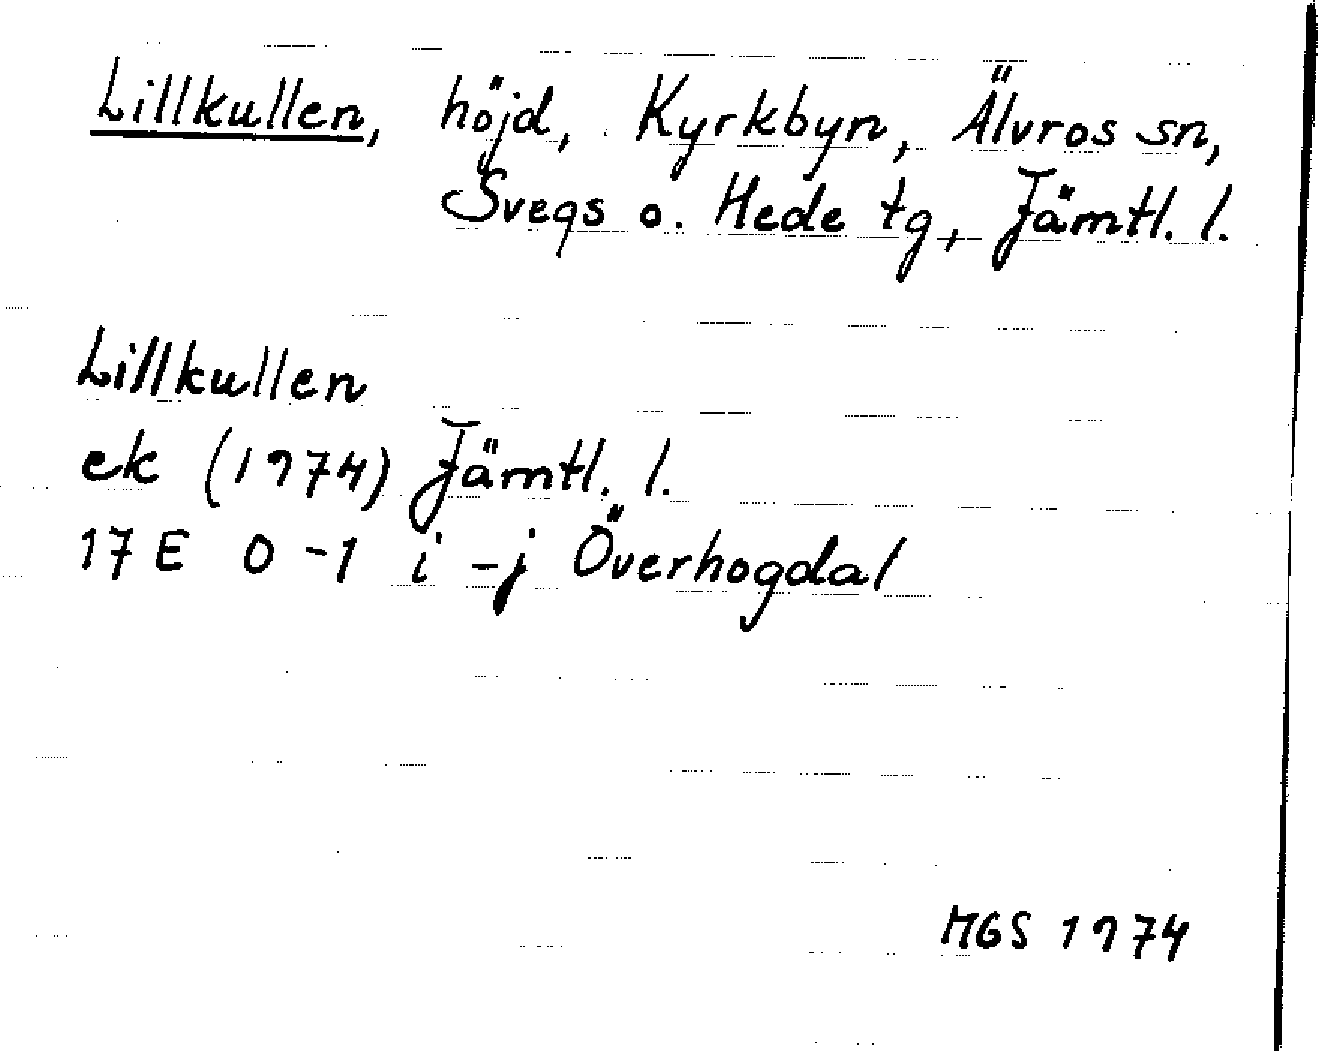 Lillkullen, höjd, Kyrkbyn, Älvros sn,
Svegs o. Hede tg, Jämtl. l.
Lillkullen
ek (1974) Jämtl. l.
17 E 0 - 1 i - j Överhogdal
MGS 1974